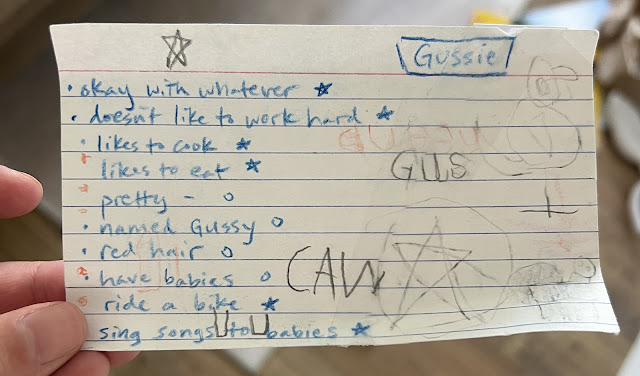 Gussie
• okay with whatever ★
• doesn't like to work hard ★
• likes to cook ★
likes to eat ★
pretty - o
• named Gussy o
• red hair o
• have babies o
ride a bike ★
sing songs to babies ★
GUS
CAW